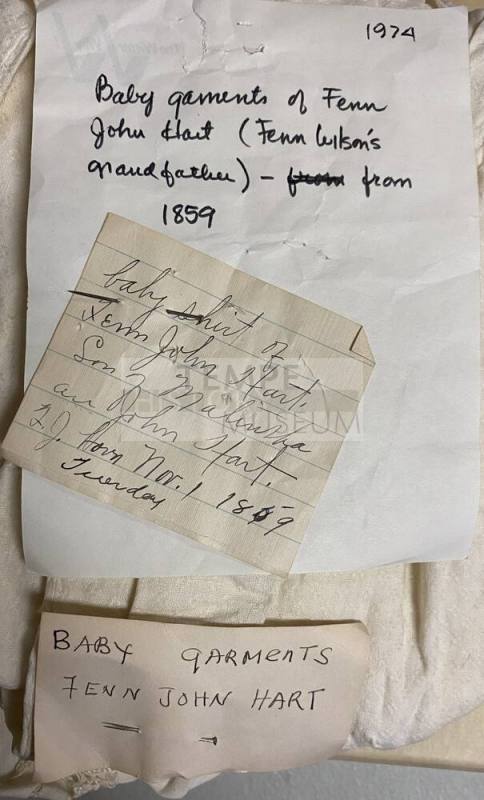 1974
Baby garments of Fenn
John Hart (Fenn Wilson's
grandfather) – from from
1859
baby shirt of
Fenn John Hart.
Son of Malinda
an John Hart.
F.J. Born Nov. 1 1859
Tuesday
TEMPE
MUSEUM
BABY GARMENTS
FENN JOHN HART